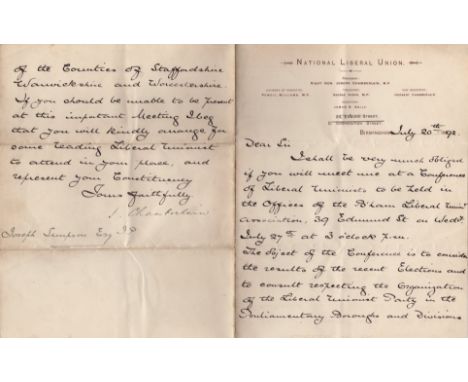 NATIONAL LIBERAL UNION.
PRESIDENT:
RIGHT HON. JOSEPH CHAMBERLAIN, M.P.
POWELL WILLIAMS, M.P.
GEORGE DIXON, M.P.
HORACE CHAMBERLAIN
SECRETARY:
39 Edmund STREET,
BIRMINGHAM July 20th 1892.
Dear Sir
I shall be very much obliged
if you will meet me at a Conference
of Liberal Unionists to be held in
the Offices of the B'ham Liberal Uniont
Association, 39 Edmund St on Wedy
July 27th at 3 o'clock p.m.
The Object of the Conference is to consider
the results of the recent Elections and
to consult respecting the Organization
of the Liberal Unionist Party in the
Parliamentary Boroughs and Divisions
of the Counties of Staffordshire
Warwickshire and Worcestershire.
If you should be unable to be present
at this important Meeting I beg
that you will kindly arrange for
some leading Liberal Unionist
to attend in your place, and
represent your Constituency
Yours faithfully
J. Chamberlain
Joseph Sampson Esq J.P.